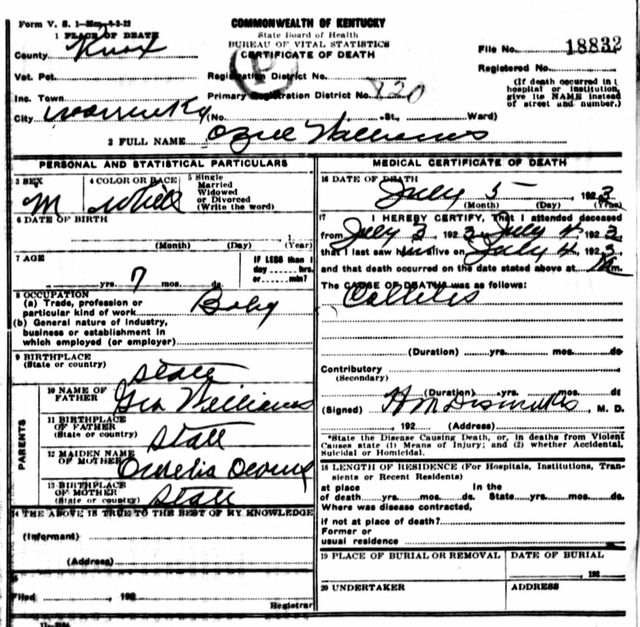 Form V. S. 1—
COMMONWEALTH OF KENTUCKY
State Board of Health
BUREAU OF VITAL STATISTICS
CERTIFICATE OF DEATH
1 PLACE OF DEATH
County Knox
File No. 18832
Registered No.
(If death occurred in a
hospital or institution,
give its NAME instead
of street and number.)
Vot. Pct.
Registration District No.
Inc. Town
Primary Registration District No. 820
City (No. St., Ward)
2 FULL NAME Williams
PERSONAL AND STATISTICAL PARTICULARS
3 SEX M
4 COLOR OR RACE White
5 Single
Married
Widowed
or Divorced
(Write the word)
6 DATE OF BIRTH
, 1
(Month) (Day) (Year)
7 AGE
yrs. 7 mos. ds.
IF LESS than 1
day hrs.
or min?
8 OCCUPATION
(a) Trade, profession or
particular kind of work Baby
(b) General nature of industry,
business or establishment in
which employed (or employer)
9 BIRTHPLACE
(State or country) State
PARENTS
10 NAME OF
FATHER Geo Williams
11 BIRTHPLACE
OF FATHER
(State or country) State
12 MAIDEN NAME
OF MOTHER
13 BIRTHPLACE
OF MOTHER
(State or country) State
14 THE ABOVE IS TRUE TO THE BEST OF MY KNOWLEDGE
(Informant)
(Address)
Filed , 192
Registrar
MEDICAL CERTIFICATE OF DEATH
16 DATE OF DEATH
July 5 , 1923
(Month) (Day) (Year)
17 I HEREBY CERTIFY, That I attended deceased
from July 3, 1923, to July 4, 1923
that I last saw him alive on July 4, 1923,
and that death occurred on the date stated above at M.
The CAUSE OF DEATH was as follows:
Collitis
(Duration) yrs. mos. ds
Contributory
(Secondary)
(Duration) yrs. mos. ds
(Signed) H M Dismukes, M. D.
, 192 (Address)
*State the Disease Causing Death, or, in deaths from Violent
Causes state (1) Means of Injury; and (2) whether Accidental,
Suicidal or Homicidal.
18 LENGTH OF RESIDENCE (For Hospitals, Institutions, Tran-
sients or Recent Residents)
at place In the
of death yrs. mos. ds. State yrs. mos. ds
Where was disease contracted,
if not at place of death?
Former or
usual residence
19 PLACE OF BURIAL OR REMOVAL
DATE OF BURIAL
, 192
20 UNDERTAKER
ADDRESS